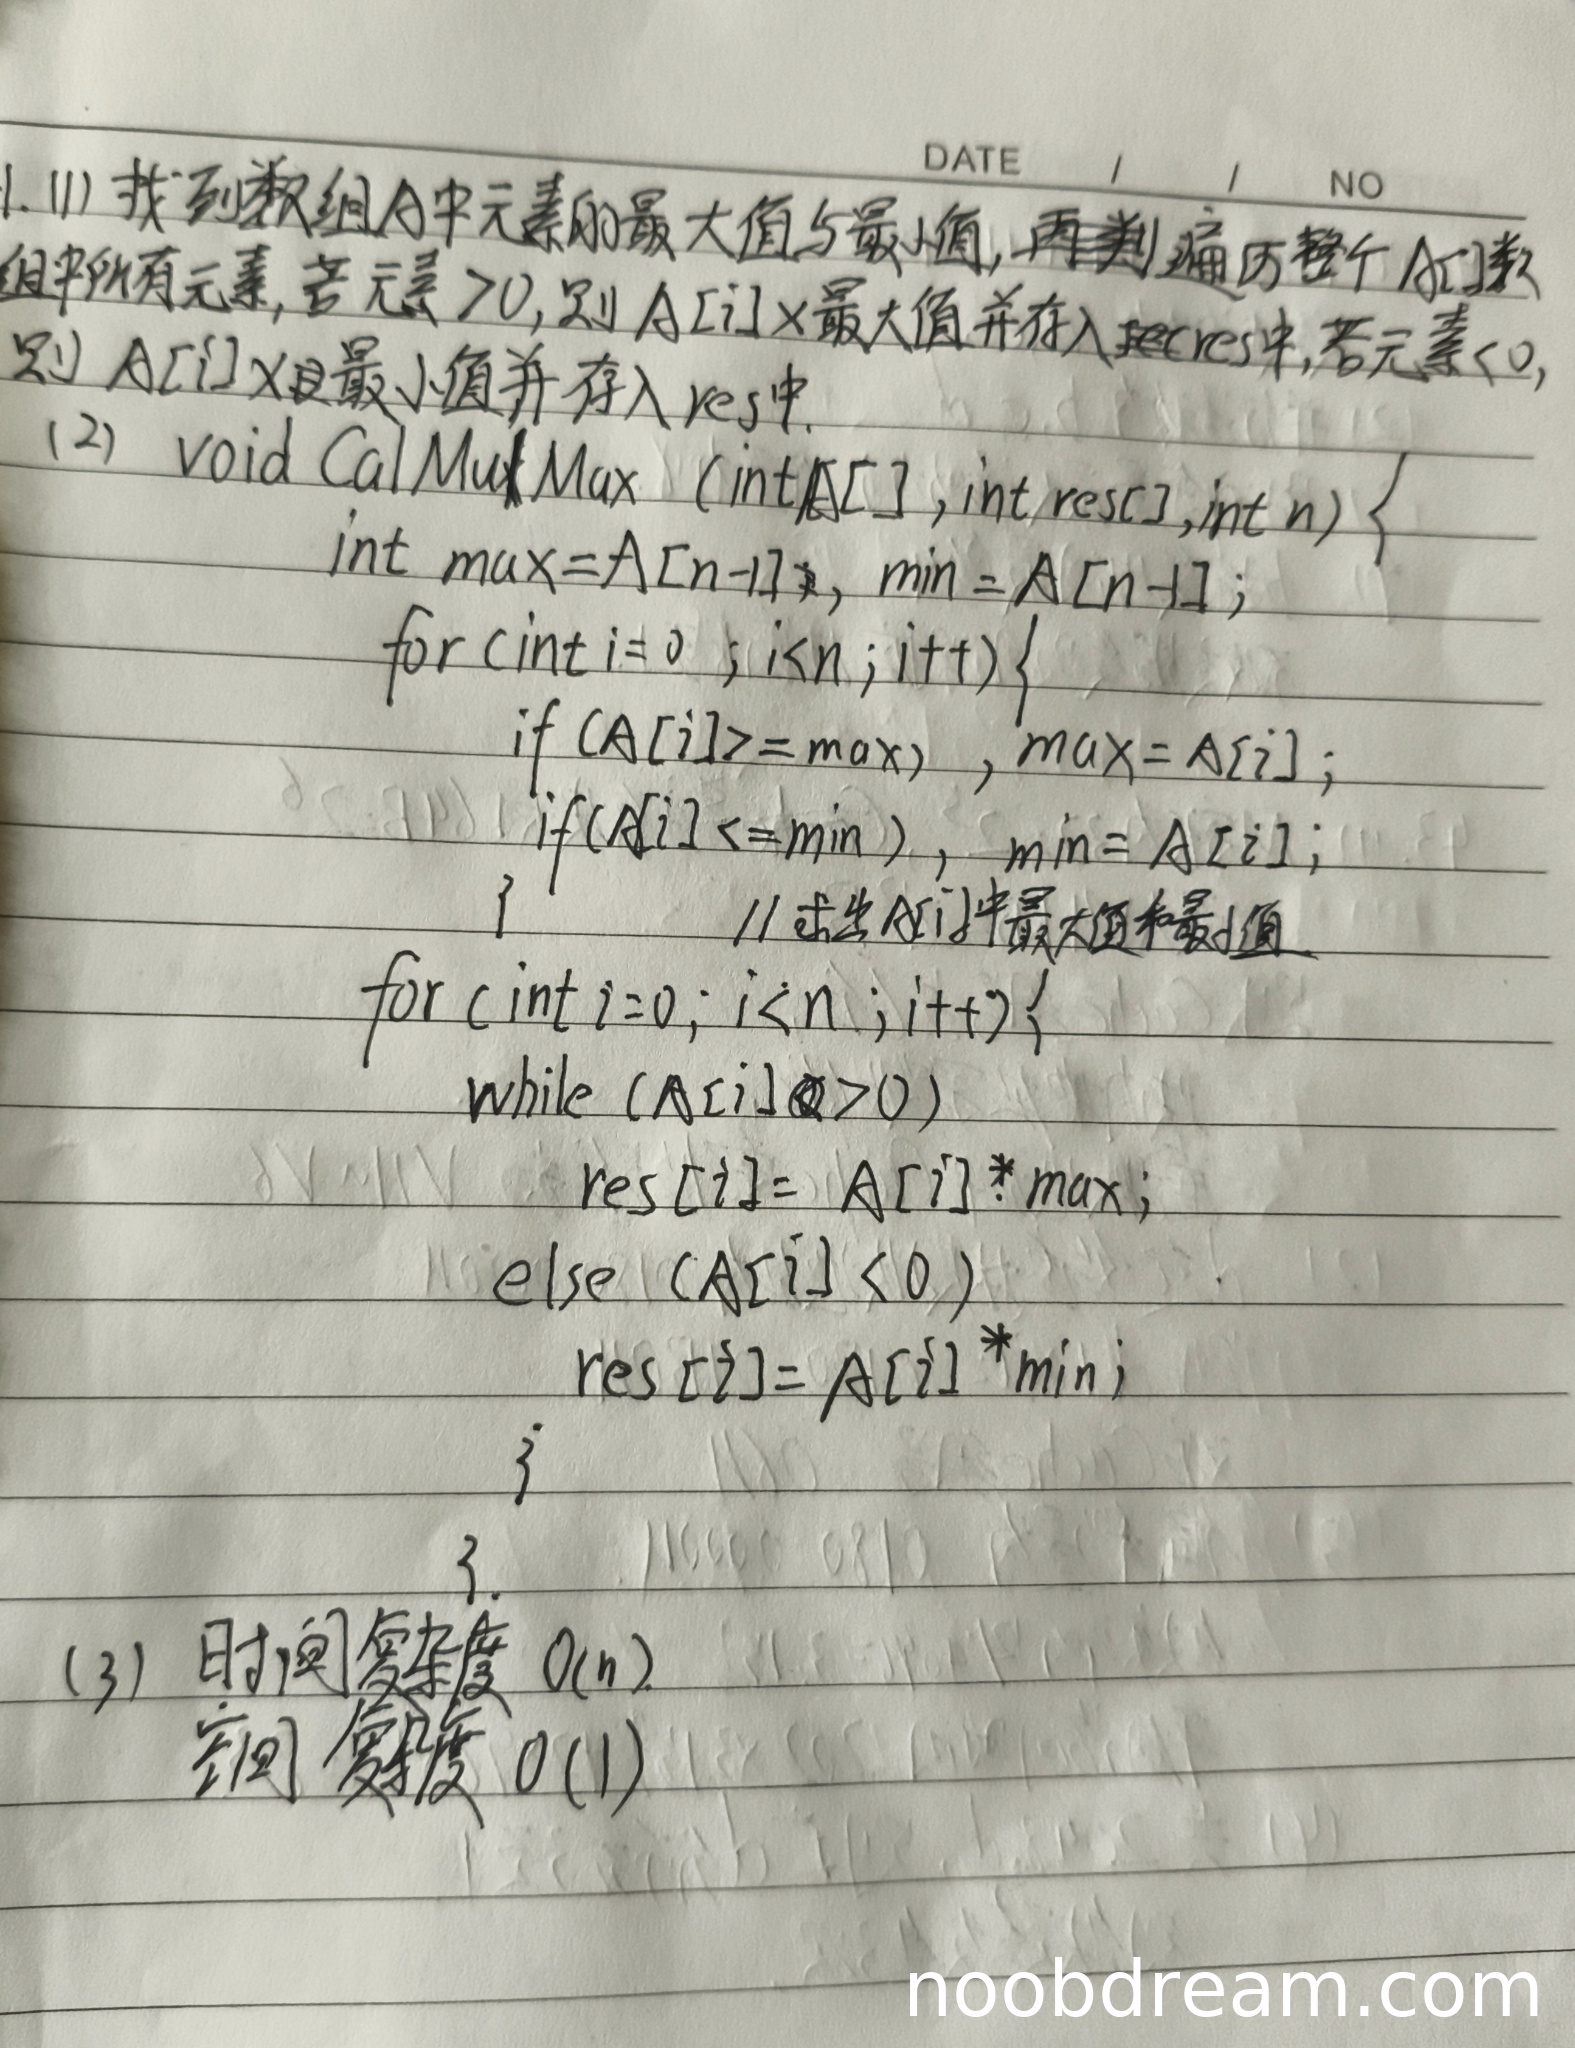 DATE / / NO
1. (1) 找到数组A中元素的最大值与最小值,再遍历整个A[]数
组中所有元素,若元素>0,则A[i]×最大值并存入res中,若元素<0,
则A[i]×最小值并存入res中.
(2) void CalMulMax (int A[], int res[], int n) {
int max=A[n-1], min=A[n-1];
for (int i=0; i<n; i++){
if (A[i]>=max), max=A[i];
if(A[i]<=min), min=A[i];
} //求出A[i]中最大值和最小值
for (int i=0; i<n; i++){
while (A[i]>0)
res[i]= A[i]*max;
else (A[i]<0)
res[i]=A[i]*min;
}
}.
(3) 时间复杂度 O(n).
空间复杂度 O(1)
noobdream.com